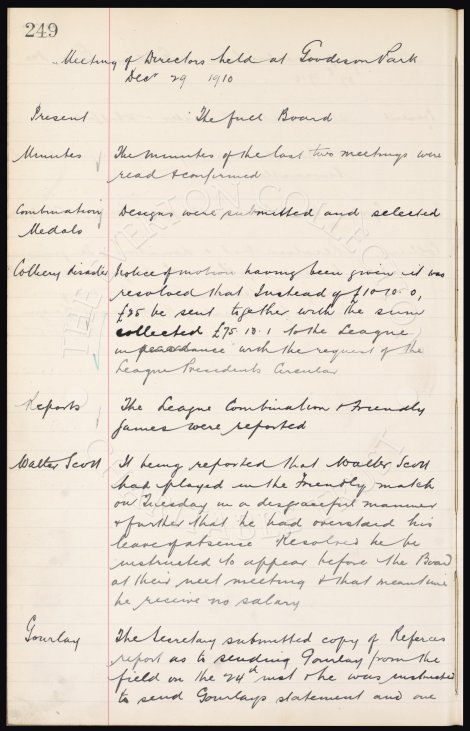 249
Meeting of Directors held at Goodison Park
Decr 29 1910
Present The full Board
Minutes The minutes of the last two meetings were
read & confirmed
Combination Designs were submitted and selected
Medals
Colliery disaster Notice of motion having been given it was
resolved that Instead of £10.10.0,
£25 be sent together with the sum
collected £75.13.1 to the League
in with the request of the
League Presidents Circular
Reports The League Combination & Friendly
games were reported
Walter Scott It being reported that Walter Scott
had played in the Friendly match
on Tuesday in a disgraceful manner
& further that he had overstaid his
leave of absense Resolved he be
instructed to appear before the Board
at their next meeting & that meantime
he receive no salary
Gourlay The Secretary submitted copy of Referees
report as to sending Gourlay from the
field on the 24th inst & he was instructed
to send Gourlays statement and one
THE EVERTON COLLECTION